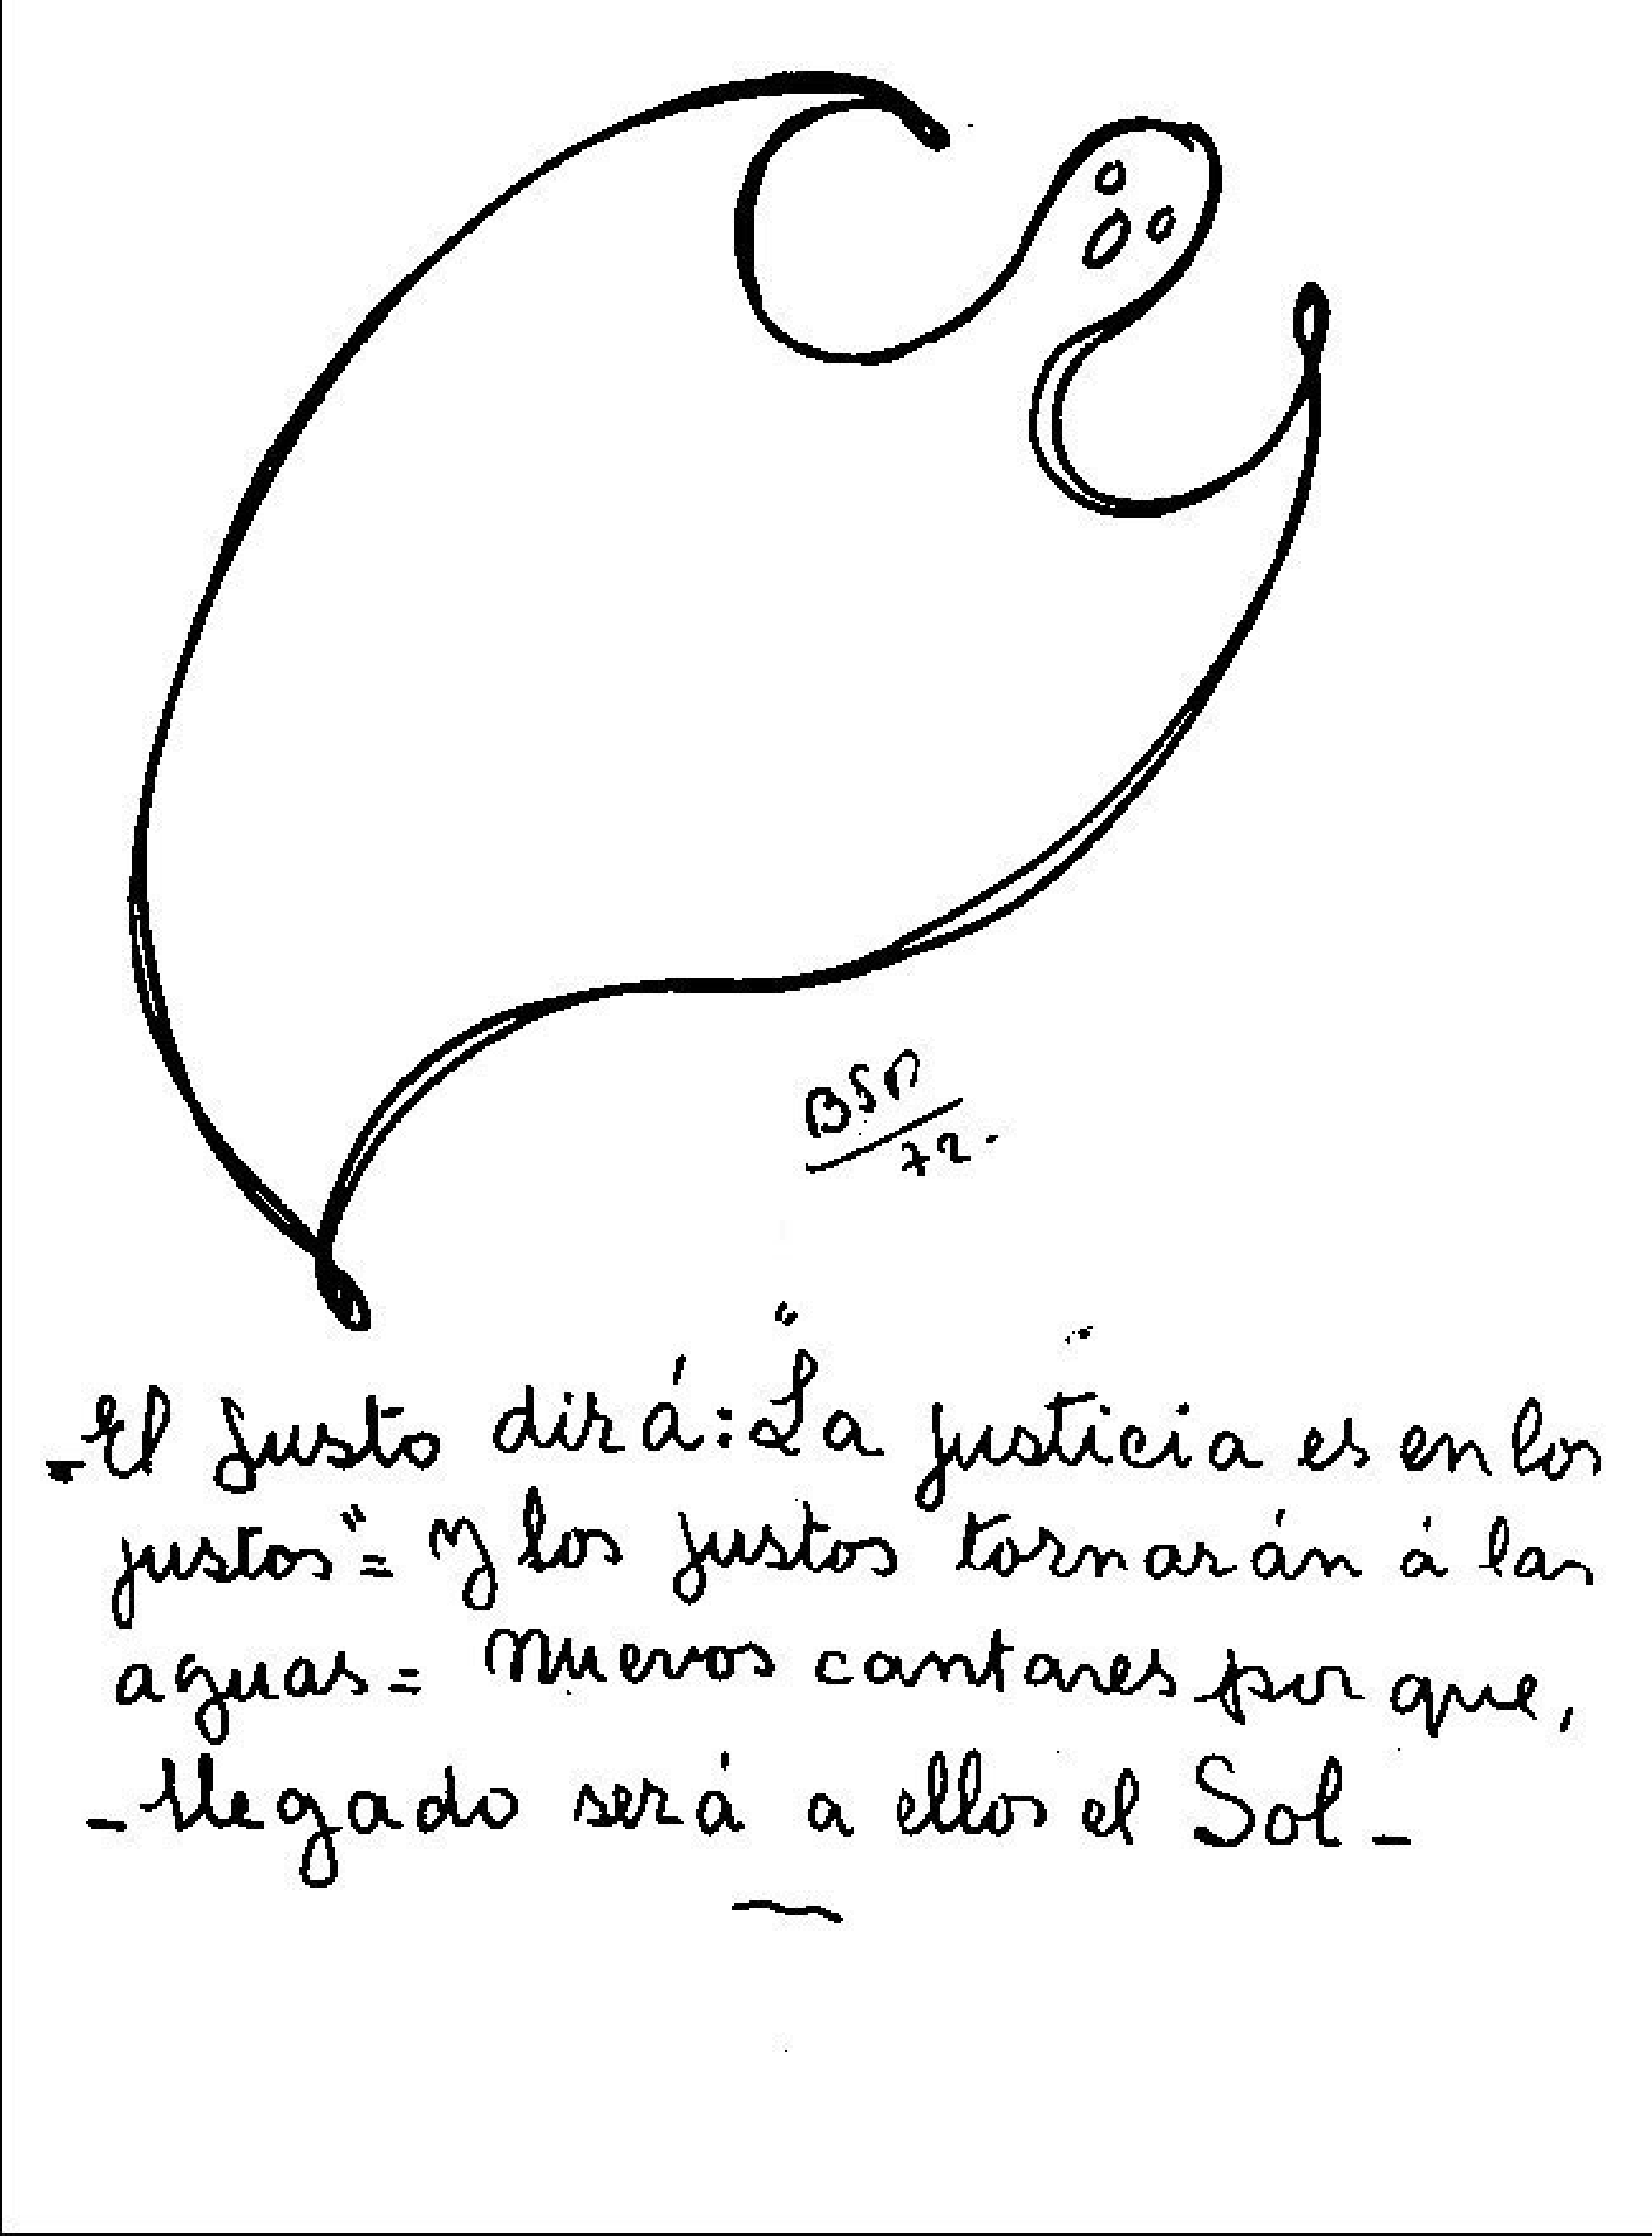 BSP
72.
-El justo dirá: "La justicia es en los
justos"= y los justos tornarán á las
aguas= nuevos cantares por que,
-llegado será a ellos el Sol-